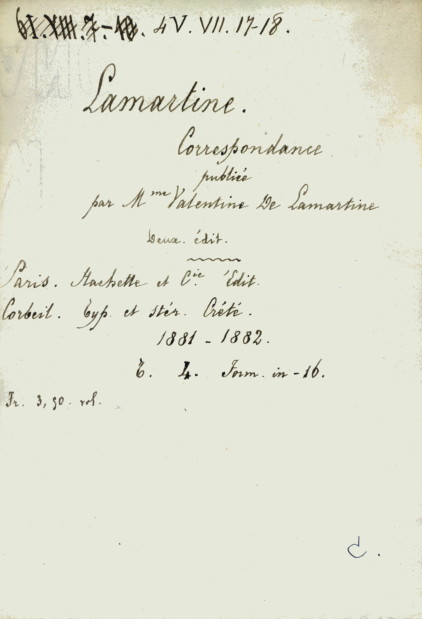 61.XIII.7.-10. 4 V. VII. 17-18.
Lamartine.
Correspondance
publiée
par Mme Valentine De Lamartine
Deux. édit.
Paris. Hachette et Cie. Edit.
Corbeil. Typ. et stér. Crété.
1881 - 1882.
T. 4. Form. in-16.
Fr. 3,50. vol.
C.